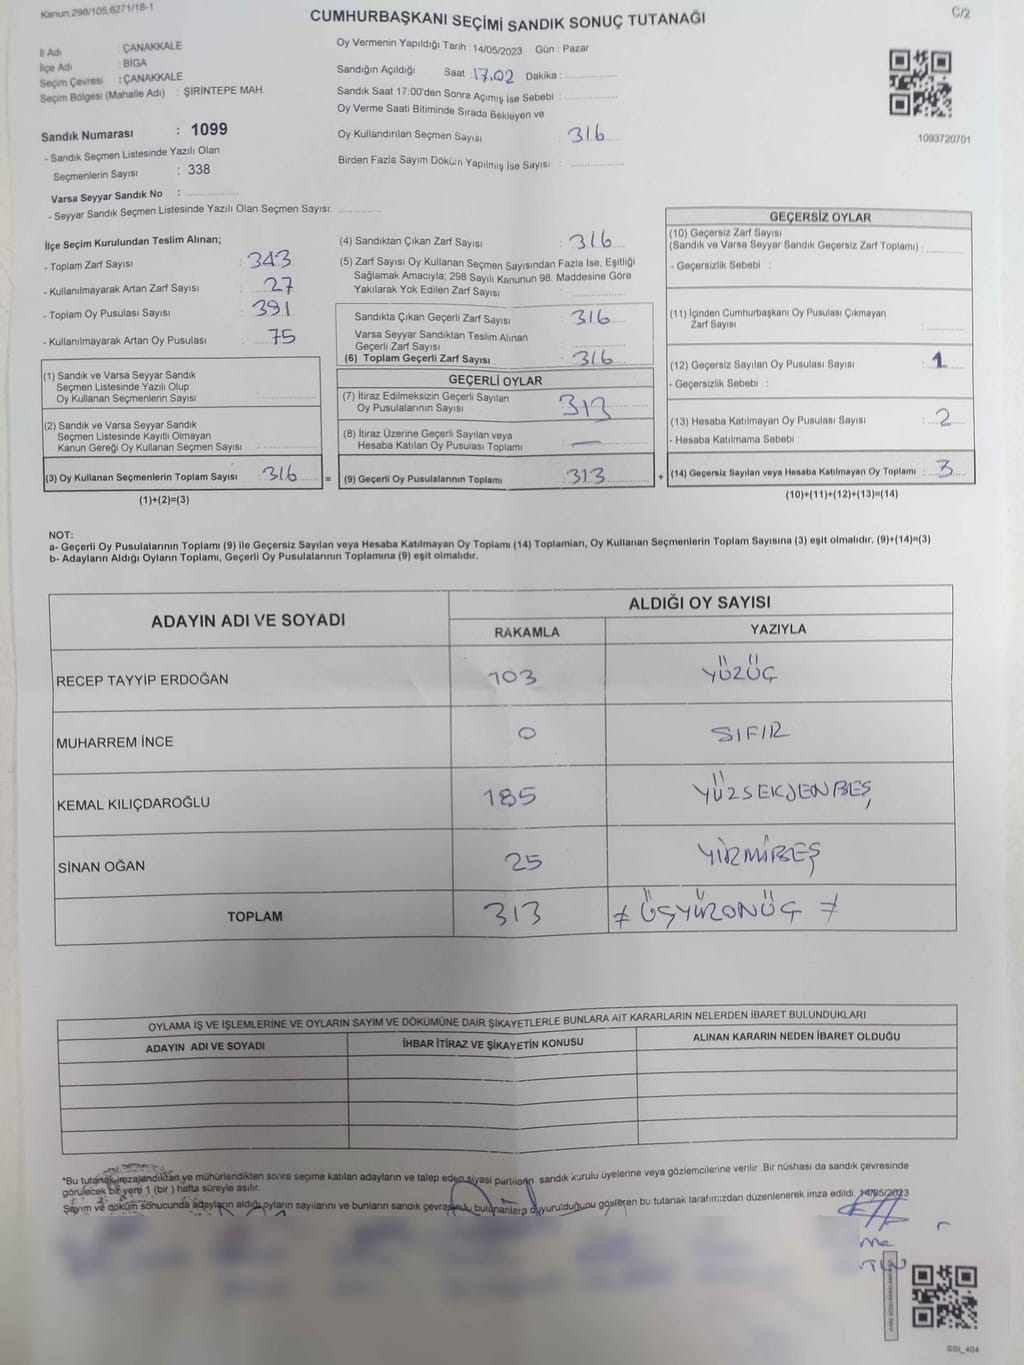 Kanun,298/105,6271/18-1
C/2
CUMHURBAŞKANI SEÇİMİ SANDIK SONUÇ TUTANAĞI
İl Adı : ÇANAKKALE
İlçe Adı : BİGA
Seçim Çevresi : ÇANAKKALE
Seçim Bölgesi (Mahalle Adı) : ŞİRİNTEPE MAH.
Sandık Numarası : 1099
- Sandık Seçmen Listesinde Yazılı Olan
Seçmenlerin Sayısı : 338
Varsa Seyyar Sandık No :
- Seyyar Sandık Seçmen Listesinde Yazılı Olan Seçmen Sayısı:
Oy Vermenin Yapıldığı Tarih : 14/05/2023 Gün : Pazar
Sandığın Açıldığı Saat : 17.02 Dakika :
Sandık Saat 17:00'den Sonra Açımış İse Sebebi :
Oy Verme Saati Bitiminde Sırada Bekleyen ve
Oy Kullandırılan Seçmen Sayısı : 316
Birden Fazla Sayım Döküm Yapılmış İse Sayısı :
1093720701
İlçe Seçim Kurulundan Teslim Alınan;
- Toplam Zarf Sayısı : 343
- Kullanılmayarak Artan Zarf Sayısı : 27
- Toplam Oy Pusulası Sayısı : 391
- Kullanılmayarak Artan Oy Pusulası : 75
(1) Sandık ve Varsa Seyyar Sandık
Seçmen Listesinde Yazılı Olup
Oy Kullanan Seçmenlerin Sayısı :
(2) Sandık ve Varsa Seyyar Sandık
Seçmen Listesinde Kayıtlı Olmayan
Kanun Gereği Oy Kullanan Seçmen Sayısı :
(3) Oy Kullanan Seçmenlerin Toplam Sayısı : 316 =
(1)+(2)=(3)
(4) Sandıktan Çıkan Zarf Sayısı : 316
(5) Zarf Sayısı Oy Kullanan Seçmen Sayısından Fazla İse, Eşitliği
Sağlamak Amacıyla; 298 Sayılı Kanunun 98. Maddesine Göre
Yakılarak Yok Edilen Zarf Sayısı :
Sandıkta Çıkan Geçerli Zarf Sayısı : 316
Varsa Seyyar Sandıktan Teslim Alınan
Geçerli Zarf Sayısı :
(6) Toplam Geçerli Zarf Sayısı : 316
GEÇERLİ OYLAR
(7) İtiraz Edilmeksizin Geçerli Sayılan
Oy Pusulalarının Sayısı : 313
(8) İtiraz Üzerine Geçerli Sayılan veya
Hesaba Katılan Oy Pusulası Toplamı : —
(9) Geçerli Oy Pusulalarının Toplamı : 313 +
GEÇERSİZ OYLAR
(10) Geçersiz Zarf Sayısı
(Sandık ve Varsa Seyyar Sandık Geçersiz Zarf Toplamı) :
- Geçersizlik Sebebi :
(11) İçinden Cumhurbaşkanı Oy Pusulası Çıkmayan
Zarf Sayısı :
(12) Geçersiz Sayılan Oy Pusulası Sayısı : 1
- Geçersizlik Sebebi :
(13) Hesaba Katılmayan Oy Pusulası Sayısı : 2
- Hesaba Katılmama Sebebi :
(14) Geçersiz Sayılan veya Hesaba Katılmayan Oy Toplamı : 3
(10)+(11)+(12)+(13)=(14)
NOT:
a- Geçerli Oy Pusulalarının Toplamı (9) ile Geçersiz Sayılan veya Hesaba Katılmayan Oy Toplamı (14) Toplamları, Oy Kullanan Seçmenlerin Toplam Sayısına (3) eşit olmalıdır. (9)+(14)=(3)
b- Adayların Aldığı Oyların Toplamı, Geçerli Oy Pusulalarının Toplamına (9) eşit olmalıdır.
ADAYIN ADI VE SOYADI
ALDIĞI OY SAYISI
RAKAMLA YAZIYLA
RECEP TAYYİP ERDOĞAN 103 YÜZÜÇ
MUHARREM İNCE 0 SIFIR
KEMAL KILIÇDAROĞLU 185 YÜZSEKSENBEŞ
SİNAN OĞAN 25 YİRMİBEŞ
TOPLAM 313 ≠ ÜÇYÜZONÜÇ ≠
OYLAMA İŞ VE İŞLEMLERİNE VE OYLARIN SAYIM VE DÖKÜMÜNE DAİR ŞİKAYETLERLE BUNLARA AİT KARARLARIN NELERDEN İBARET BULUNDUKLARI
ADAYIN ADI VE SOYADI İHBAR İTİRAZ VE ŞİKAYETİN KONUSU ALINAN KARARIN NEDEN İBARET OLDUĞU
*Bu tutanak imzalandıktan ve mühürlendikten sonra seçime katılan adayların ve talep eden siyasi partilerin sandık kurulu üyelerine veya gözlemcilerine verilir. Bir nüshası da sandık çevresinde
görülecek bir yere 1 (bir) hafta süreyle asılır.
Sayım ve döküm sonucunda adayların aldığı oyların sayılarını ve bunların sandık çevresinde bulunanlara duyurulduğunu gösteren bu tutanak tarafımızdan düzenlenerek imza edildi. 14/05/2023